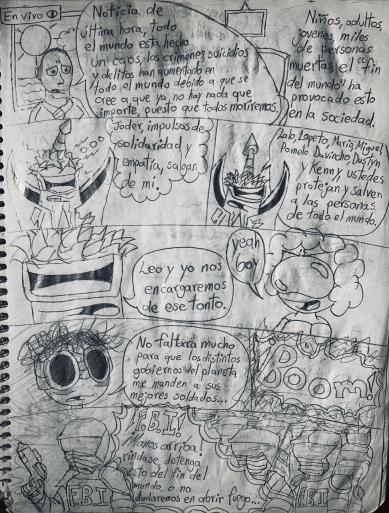 En vivo
Noticia de
última hora, todo
el mundo está hecho
un caos, los crímenes, suicidios
y delitos han aumentado en
todo el mundo debido a que se
cree a que ya no hay nada que
importe, puesto que todos moriremos.
Niños, adultos,
jóvenes, miles
de personas
muertas, el "fin
del mundo" ha
provocado esto
en la sociedad.
Joder, impulsos de
solidaridad y
empatía, salgan
de mí.
Lopeto, María, Miguel
Pomelo, Davincho, Dustyn
y Kenny, ustedes
protejan y salven
a las personas
de todo el mundo.
Leo y yo nos
encargaremos
de ese tonto.
yeah
Go!
No faltará mucho
para que los distintos
gobiernos del planeta
me manden a sus
mejores soldados...
Boom!
F.B.I!
¡Manos arriba!
ríndase, detenga
esto del fin del
mundo, o no
dudaremos en abrir fuego...
F.B.I
F.B.I